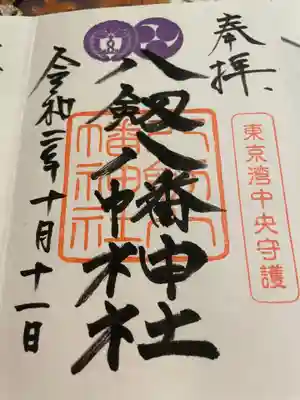 奉拝
東京湾中央守護
八釼八幡神社
令和二年十月十一日